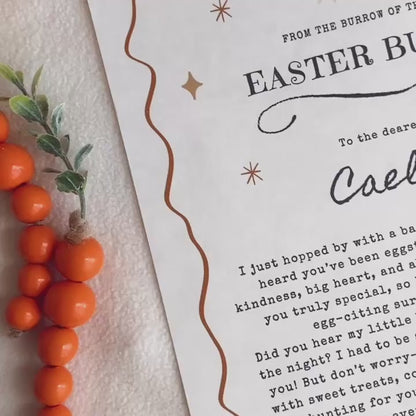 FROM THE BURROW OF
EASTER
To the
I just hopped by with a
heard you've been
kindness, big heart, and
you truly special, so
egg-citing
Did you hear my little
the night? I had to be
you! But don't worry-
with sweet treats,
hunting for